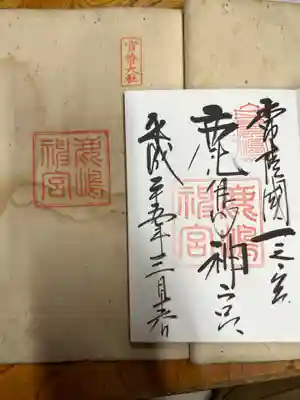 常陸國一之宮
鹿島神宮
鹿嶋神宮
平成年三月
官幣大社
鹿嶋神宮